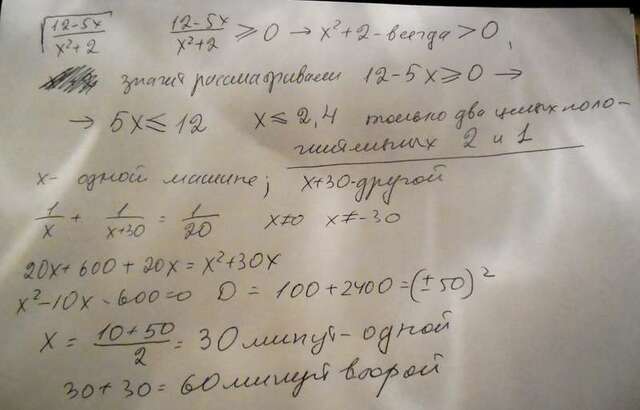 √(12-5x)/(x²+2)   (12-5x)/(x²+2) ≥ 0 → x²+2 - всегда > 0,
значит рассматриваем 12-5x ≥ 0 →
→ 5x ≤ 12   x ≤ 2,4 только два целых поло-
жительных 2 и 1
x - одной машине; x+30-другой
1/x + 1/(x+30) = 1/20   x≠0   x≠-30
20x+600+20x = x²+30x
x²-10x-600=0   D = 100+2400=(±50)²
x = (10+50)/2 = 30 минут - одной
30+30=60 минут второй